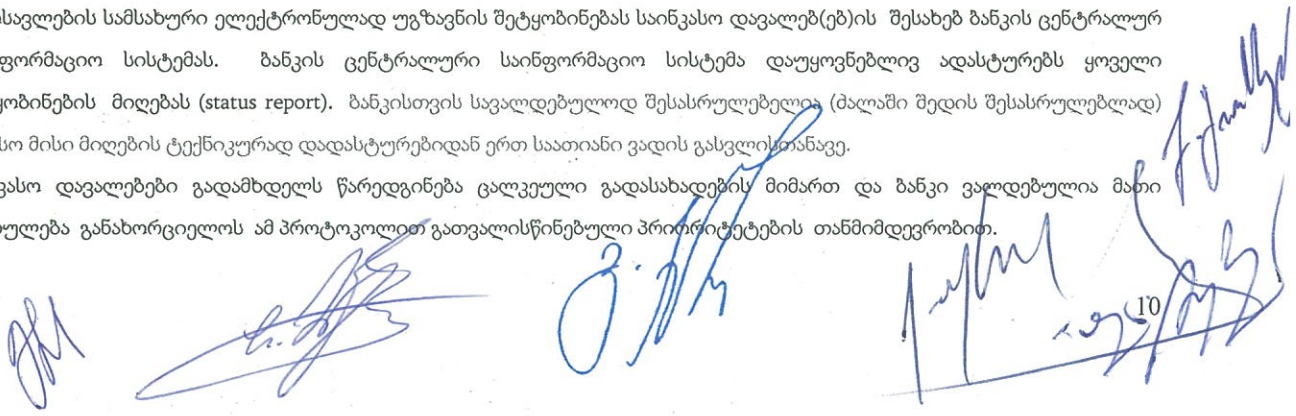 სავლების სამსახური ელექტრონულად უგზავნის შეტყობინებას საინკასო დავალებ(ებ)ის შესახებ ბანკის ცენტრალურ
ფორმაციო სისტემას. ბანკის ცენტრალური საინფორმაციო სისტემა დაუყოვნებლივ ადასტურებს ყოველი
ყობინების მიღებას (status report). ბანკისთვის სავალდებულოდ შესასრულებელია (ძალაში შედის შესასრულებლად)
სო მისი მიღების ტექნიკურად დადასტურებიდან ერთ საათიანი ვადის გასვლისთანავე.
კასო დავალებები გადამხდელს წარედგინება ცალკეული გადასახადების მიმართ და ბანკი ვალდებულია მათი
ულება განახორციელოს ამ პროტოკოლით გათვალისწინებული პრიორიტეტების თანმიმდევრობით.
10